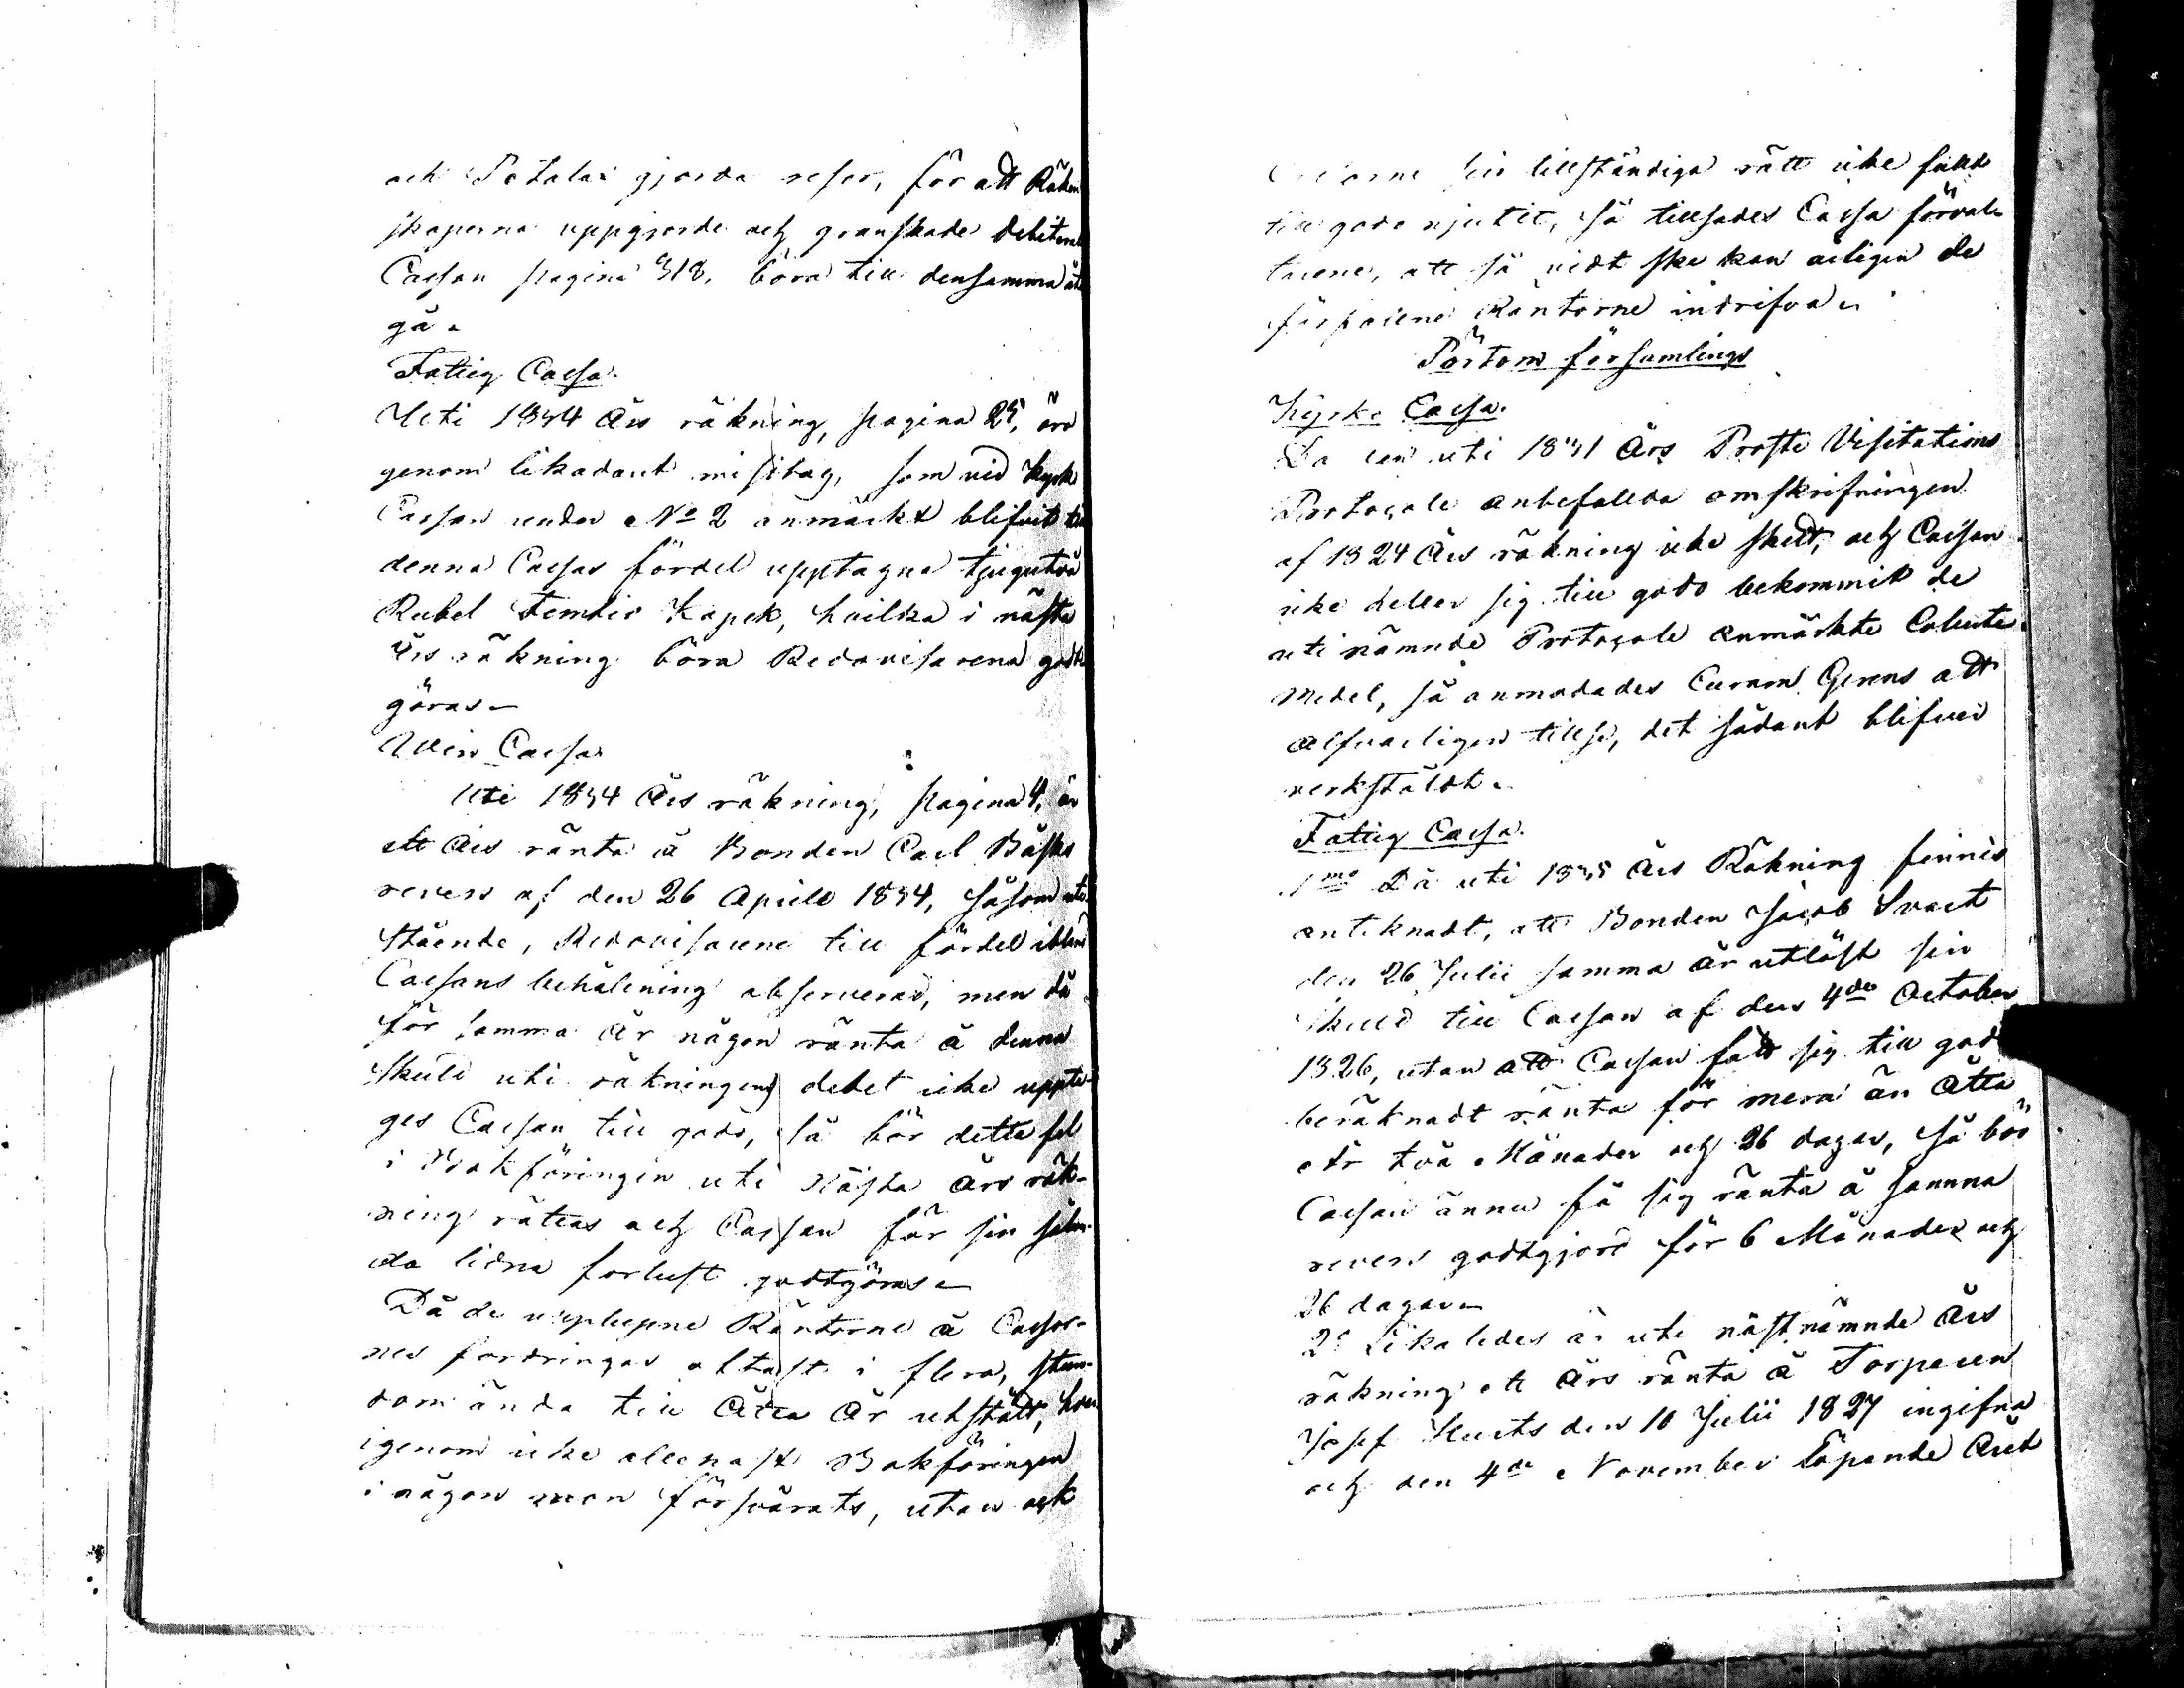 och Petalax gjorda resor, för att Räken
skaperna uppgjorde och granskade debiterat
Cassan pagina 318, böra till densamma åter
gå.
Fattig Cassa.
Uti 1834 års räkning, pagina 25, äro
genom likadant misstag, som vid Kyrko
Cassan under No 2 anmärkt blifvit till
denna Cassas fördel upptagna tjugutvå
Rubel Femtio Kopek, hvilka i nästa
Års räkning böra Redovisarena godt
göras.
Win Cassa
Uti 1834 Års räkning, pagina 4, är
ett Års ränta å Bonden Carl Bäsks
revers af den 26 April 1834, såsom ute
stående, Redovisarene till fördel ibland
Cassans behållning observerad, men då
för samma År någon ränta å denna
Skuld uti räkningens debet icke uppta-
ges Cassan till godo, så bör detta fel
i Bokföringen uti Nästa års räk-
ning rättas och Cassan för sin sålun-
da lidna forlust godtgöras.
Då de upplupne Räntorne å Cassor-
nes fordringar oftast i flera, stun-
dom ända till Åtta År utstått, hvar
igenom icke allenast Bokföringen
i någon mon försvårats, utan ock
sin tillständiga rätt icke fullt
till godo njutit, så tillsades Cassa förval-
tarene, att så vidt ske kan årligen de
förfallne Räntorne indrifva.
Pörtom församlings
Kyrko Cassa.
Då den uti 1831 Års Prosts Visitations
Protocoll anbefallda omskrifningen
af 1824 Års räkning icke skett, och Cassan
icke heller sig till godo bekommit de
uti nämnde Protocoll anmärkte Collecte
medel, så anmodades Curam Gerens att
alfvarligen tillse, det sådant blifver
verkstäldt.
Fattig Cassa.
1mo Då uti 1835 Års Räkning finnes
antecknadt, att Bonden Jacob Svart
den 26 Julii samma år utlöst sin
Skuld till Cassan af den 4de October
1826, utan att Cassan fått sig till godo
beräknadt ränta för mera än Åtta
År två Månader och 26 dagar, så bör
Cassan ännu få sig ränta å samma
revers godtgjord för 6 Månader och
26 dagar.
2o Likaledes är uti nästnämnde Års
räkning ett Års ränta å Torparen
Josef Hurts den 10 Julii 1827 ingifna
och den 4de November löpande Året